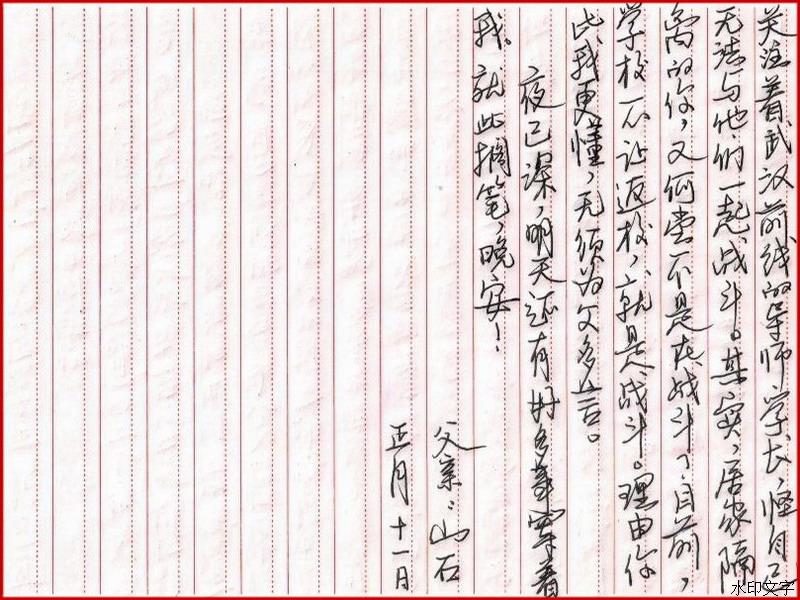 关注着武汉前线的导师、学长，怪自己
无法与他们一起战斗。其实，居家隔
离的你，又何尝不是在战斗？目前，
学校不让返校，就是战斗。理由你
比我更懂，无须为父多言。
夜已深，明天还有好多事等着
我。就此搁笔，晚安！
父亲：山石
正月十一日
水印文字